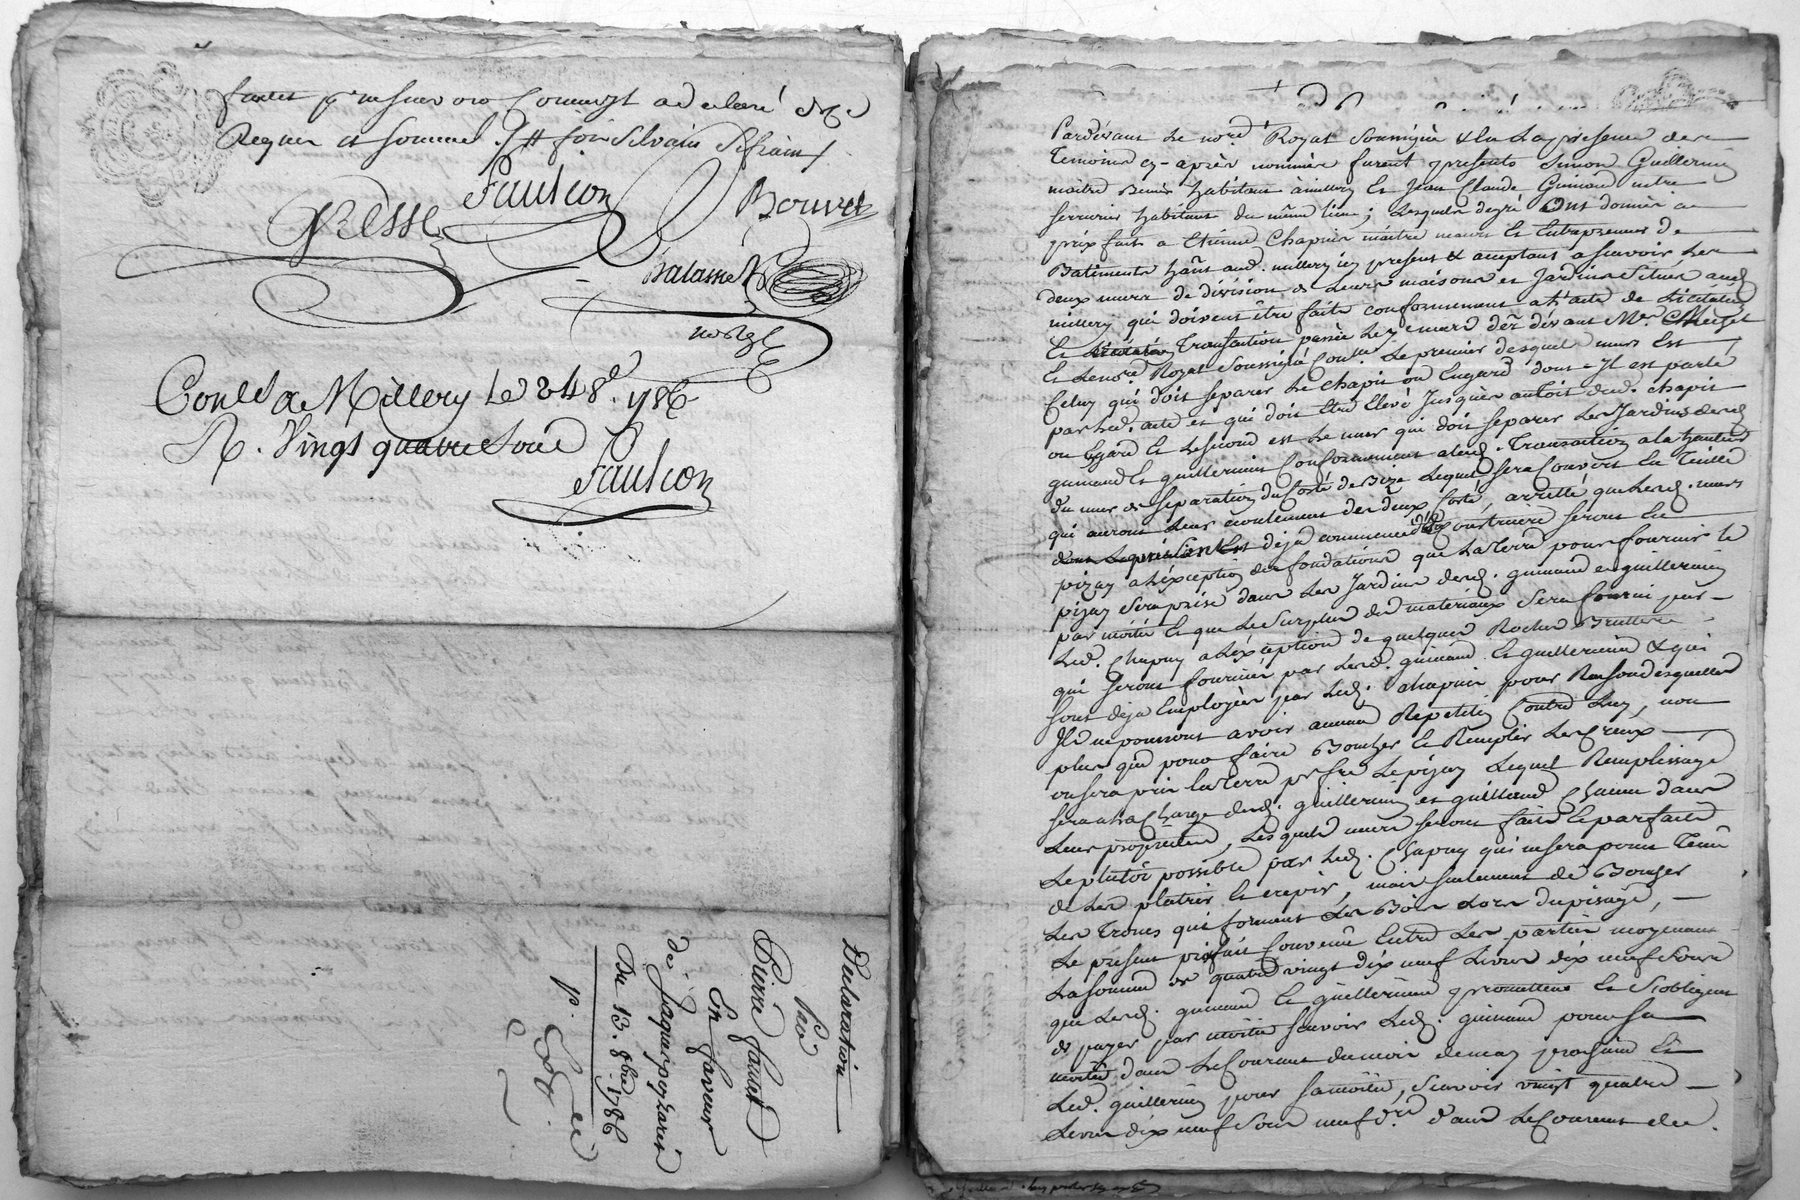 faites
Requer et sommé foi Silvain
Faulcon
GRESSE
Bouvet
Balasme
Con.lé a Millery le 24 8.e 1786
R. Vingt quatre sols
Faulcon
Declaration
par
Pierre
En faveur
de Jaques
Du 13. 8bre 1786
Pardevant Le no.re Royal Soussigné & En La presence des
Temoins cy-après nommés furent presents Simon Guillermin
maitre habitant a millery Et Jean Claude Guinand
serrurier habitant du même lieu ; Lesquels degré Ont donné a
prix fait a Etienne Chapuis maitre maçon Et Entrepreneur de
Batiments hâût aud. millery icy present & aceptant a sçavoir Les
deux murs de division de Leurs maisons et Jardins Situés aud.
millery qui doivent être faits conformement a L'acte de Licitation
Et Transaction passée Le mars der devant Me.
Et Le no.re Royal Soussigné Le premier desquels murs Est
Celuy qui doit separer Le chapit ou Engard dont Il est parlé
par Led. acte et qui doit Etre Elevé Jusques au toit dud. chapit
ou Et Le second est Le mur qui doit separer Les Jardins desd.
guinand Et guillermin Conformement alad. Transaction a la hauteur
du mur de separation du Costé de Bize Lequel sera Couvert En Tuille
qui auront Leur ecoulement des deux Costé, arretté que Lesd. murs
deja commencé construire seront En
pizay a L'exception des fondations que La terre pour fournir le
pizay sera prise dans Les Jardins desd. guinand et guillermin
par moitié Et que Le Surplus des materiaux Sera fourni par
Led. Chapuy a L'exception de quelques Roches
qui seront fournies par Lesd. guinand Et guillermin & qui
sont deja Employées par Led. chapuis pour Raison desquelles
Ils ne pourront avoir aucune Repetition Contre Luy, non
plus que pour faire Boucher Et Remplir Les Creux
ou sera pris La terre pr fre Le pizay Lequel Remplissage
sera a La charge desd. guillermin et guinand chacun dans
Leurs proprietés, Lesquels murs seront faits Et parfaits
Le plutôt possible par Led. Chapuy qui ne sera point Tenu
de Les platrir Et crepir, mais seulement de Boucher
Les Trous qui forment Les Bois Lors du pisage,
Le present prixfait Convenu Entre Les parties moyenant
La somme de quatre vingt dix neuf Livres dix neuf Sous
que Lesd. guinand Et guillermin promettent Et S'obligent
de payer par moitié Sçavoir Led. guinand pour sa
moitié dans Le Courant du mois de may prochain Et
Led. guillermin pour sa moitié, Sçavoir vingt quatre
Livres dix neuf Sous neuf d.rs dans Le Courant de